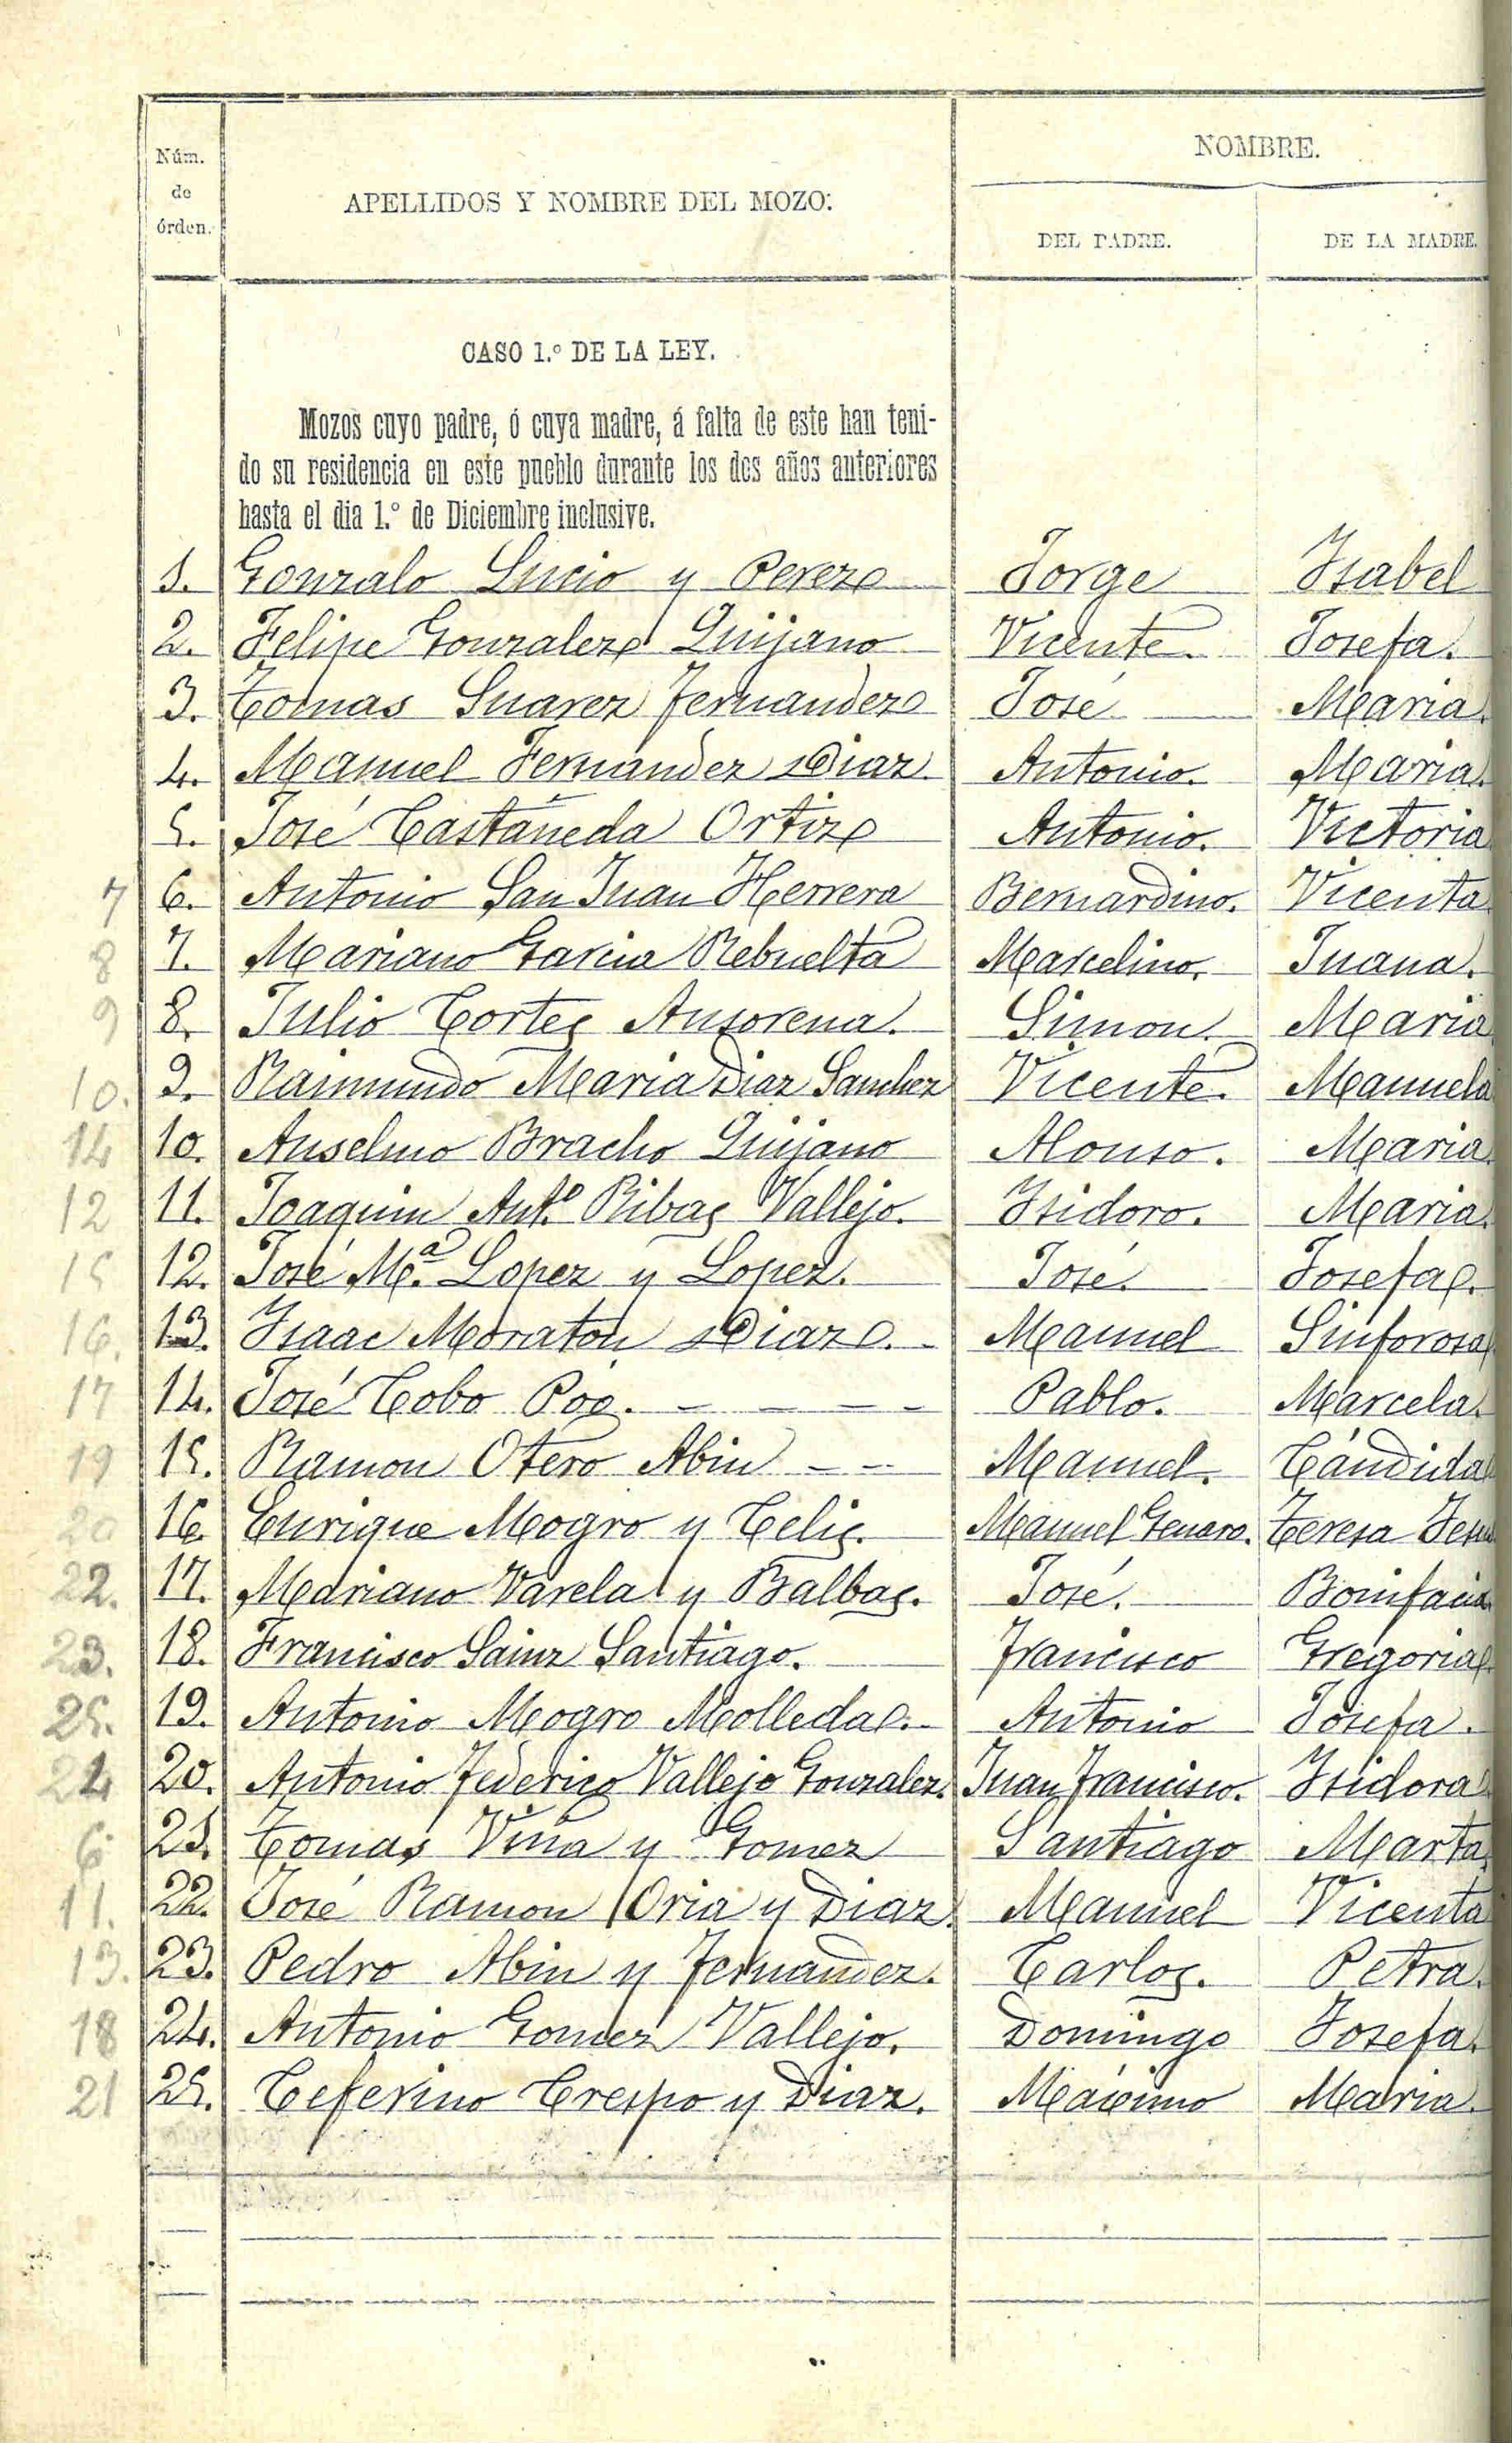 Núm. de órden.
APELLIDOS Y NOMBRE DEL MOZO.
NOMBRE.
DEL PADRE.
DE LA MADRE.
CASO 1.º DE LA LEY.
Mozos cuyo padre, ó cuya madre, á falta de este han teni-
do su residencia en este pueblo durante los dos años anteriores
hasta el dia 1.º de Diciembre inclusive.
1. Gonzalo Lucio y Perez Jorge Isabel
2. Felipe Gonzalez Quijano Vicente. Josefa.
3. Tomas Suarez Fernandez José Maria.
4. Manuel Fernandez Diaz Antonio. Maria.
5. José Castañeda Ortiz Antonio. Victoria
7 6. Antonio San Juan Herrera Bernardino. Vicenta
8 7. Mariano Garcia Rebuelta Marcelino. Juana.
9 8. Julio Cortes Ansorena. Simon. Maria
10. 9. Raimundo Maria Diaz Sanchez Vicente. Manuela
14 10. Anselmo Bracho Quijano Alonso. Maria
12 11. Joaquin Ant.º Ribas Vallejo. Isidoro. Maria.
15 12. José M.ª Lopez y Lopez. José. Josefa.
16. 13. Isaac Moraton Diaz. Manuel Sinforosa
17 14. José Cobo Poo. Pablo. Marcela.
19 15. Ramon Otero Abin Manuel. Cándida
20 16. Enrique Mogro y Celis. Manuel Genaro. Teresa
22. 17. Mariano Varela y Balbas. José. Bonifacia
23. 18. Francisco Sainz Santiago. Francisco Gregoria
25. 19. Antonio Mogro Molleda. Antonio Josefa.
24 20. Antonio Federico Vallejo Gonzalez. Juan Francisco. Isidora
6 21. Tomas Viña y Gomez Santiago Marta
11. 22. José Ramon Oria y Diaz Manuel Vicenta
13. 23. Pedro Abin y Fernandez. Carlos. Petra.
18 24. Antonio Gomez Vallejo. Domingo Josefa.
21 25. Ceferino Crespo y Diaz. Máximo Maria.